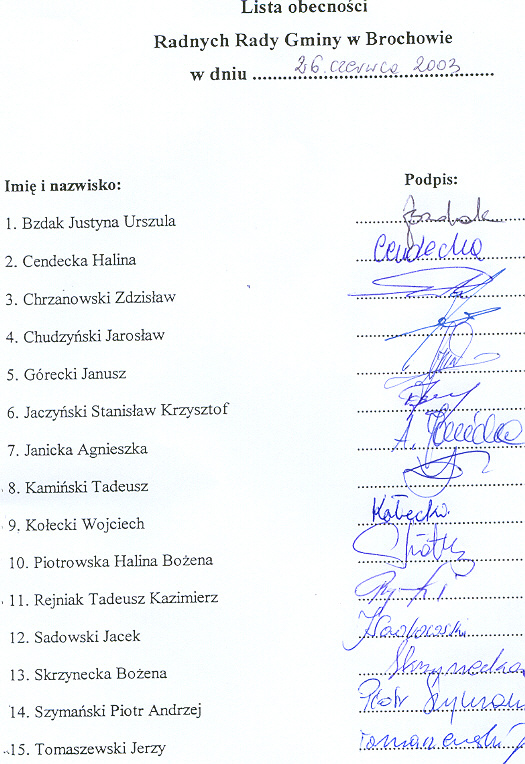 Lista obecności
Radnych Rady Gminy w Brochowie
w dniu 26. czerwca 2003
Imię i nazwisko: Podpis:
1. Bzdak Justyna Urszula
2. Cendecka Halina Cendecka
3. Chrzanowski Zdzisław
4. Chudzyński Jarosław
5. Górecki Janusz
6. Jaczyński Stanisław Krzysztof
7. Janicka Agnieszka A. Janicka
8. Kamiński Tadeusz
9. Kołecki Wojciech Kołecki
10. Piotrowska Halina Bożena
11. Rejniak Tadeusz Kazimierz
12. Sadowski Jacek
13. Skrzynecka Bożena Skrzynecka
14. Szymański Piotr Andrzej Piotr
15. Tomaszewski Jerzy Tomaszewski